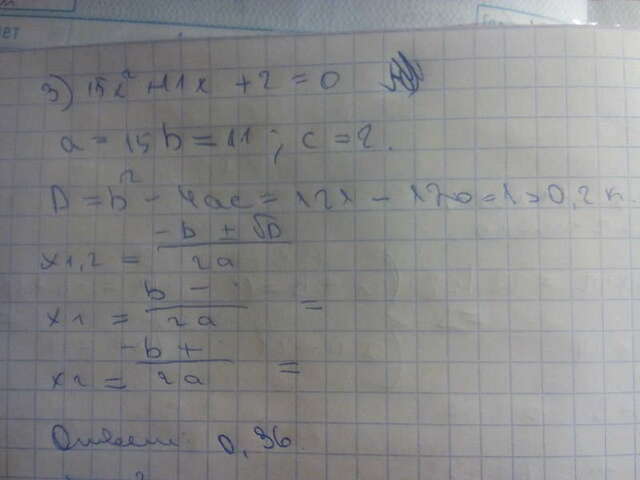 ет
3) 15x² + 11x + 2 = 0
a = 15 b = 11 ; c = 2.
D = b² - 4ac = 121 - 120 = 1 > 0, 2 к.
x1,2 = (-b ± √D) / 2a
x1 = (b -) / 2a =
x2 = (-b +) / 2a =
Ответ: 0,36